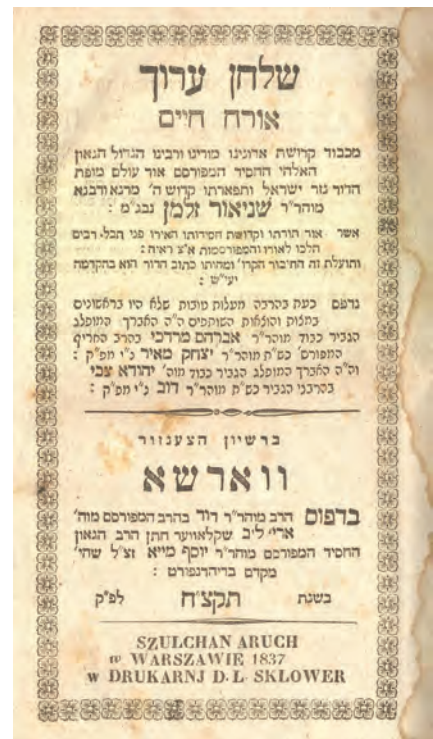 שלחן ערוך
אורח חיים
מכבוד קדושת אדונינו מורינו ורבינו הגדול הגאון
האלהי החסיד המפורסם אור עולם מופת
הדור נזר ישראל ותפארתו קדוש ה' מרנא ורבנא
מוהר"ר שניאור זלמן נבג"מ :
אשר אור תורתו וקדושת חסידותו האירו פני תבל, רבים
הלכו לאורו והמפורסמות א"צ ראיה :
ותועלת זה החיבור הקדו' ומהותו כתוב הדור הוא בהקדמה
יעי"ש :
נדפס כעת בהרבה מעלות טובות שלא היו בראשונים
בהגהות והוצאות השותפים ה"ה האברך המופלג
הנגיד כבוד מוהר"ר אברהם מרדכי בהרב החריף
המפורס' כש"ת מוהר"ר יצחק מאיר נ"י מפ"ק :
וה"ה האברך המופלג הנגיד כבוד מוה' יהודא צבי
בהרבני הנגיד כש"ת מוהר"ר דוב נ"י מפ"ק :
ברשיון הצענזור
ווארשא
בדפוס הרב מוהר"ר דוד בהרב המפורסם מוה'
ארי' ליב שקלאווער חתן הרב הגאון
החסיד המפורסם מוהר"ר יוסף מייא זצ"ל שהי'
מקדם בדיהרנפורט :
בשנת תקצ"ח לפ"ק
SZULCHAN ARUCH
w WARSZAWIE 1837
w DRUKARNJ D. L. SKLOWER